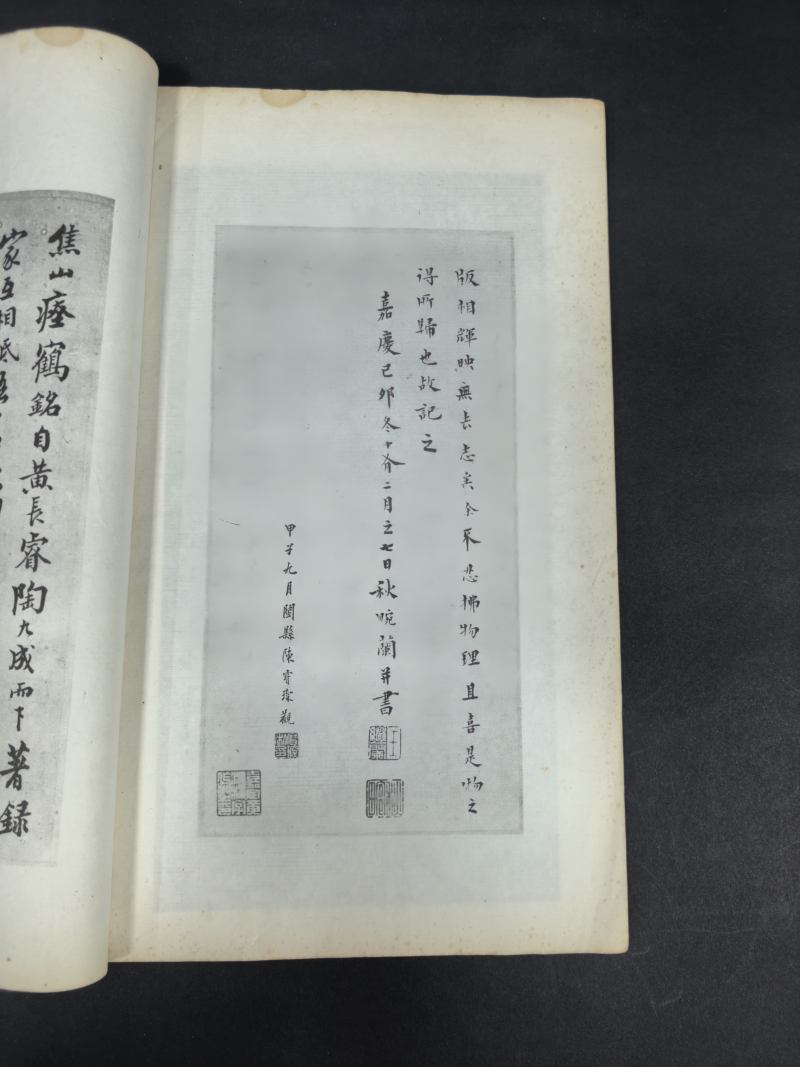 版相輝映無長志矣余取悲拂物理且喜是物之
得所歸也故記之
嘉慶己卯冬十有二月之七日秋畹蘭并書
甲子九月閩縣陳寶琛觀
焦山瘞鶴銘自黃長睿陶九成而下著録
家互相